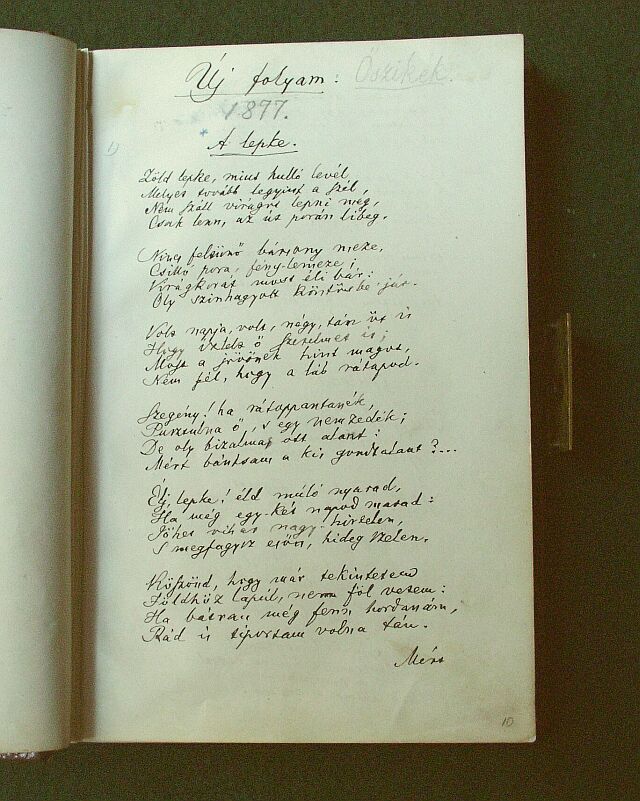 Új folyam. Őszikék.
1877.
*
1)
A lepke.
Zöld lepke, mint hulló levél,
Melyet tovább legyint a szél,
Nem száll virágrul lepni meg,
Csak lenn, az út porán libeg.
Nincs feltünő bársony meze,
Csilló pora, fény-lemeze;
Virágkorát most éli bár:
Oly szinhagyott köntösbe jár.
Volt napja, volt, négy, tán öt is
Hogy ő szerelmes is;
Most a jövőnek tisztt magvat,
Nem fél, hogy a láb rátapod.
Szegény! ha rátappantanék,
Pusztulna ő, s egy nemzedék;
De oly bizalmas ott alant:
Mért bántsam a kis gondtalant?...
Élj lepke! éld múló nyarad,
Ha még egy-két napod marad:
Jőhet vihar nagy-hirtelen,
S megfagysz esőn, hideg szelen.
Köszönd, hogy már tekintetem
Földhöz lapúl, nem föl vetem:
Ha bátran még fenn hordanám,
Rád is tiportam volna tán.
Mért
10